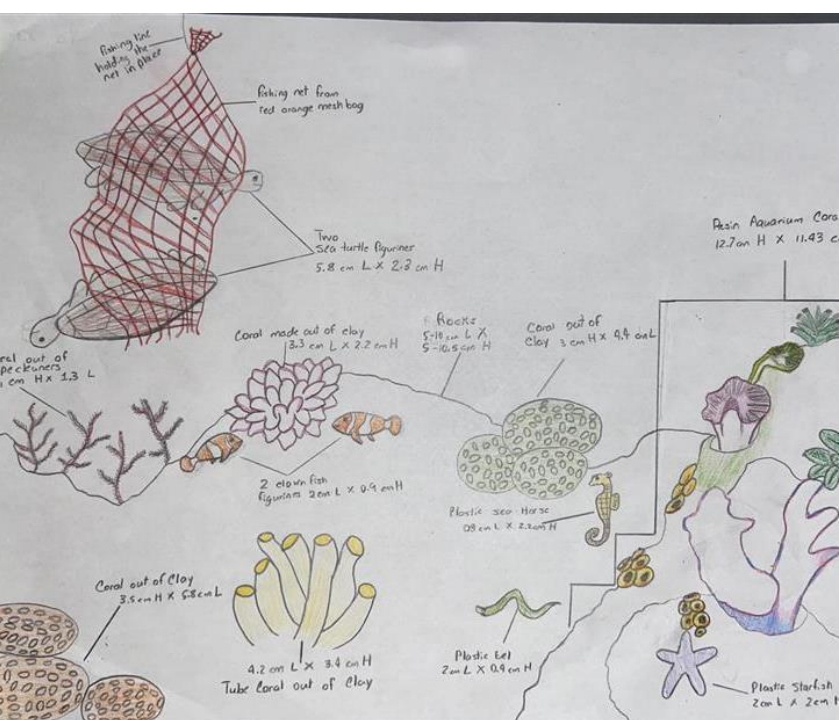 fishing line
holding the
net in place
fishing net from
red orange mesh bag
Two
Sea turtle figuriner
5.8 cm L X 2.3 cm H
Resin Aquarium Cora
12.7 cm H X 11.43 c
Coral made out of clay
3.3 cm L X 2.2 cm H
Rocks
5-10 cm L X
5-10.5 cm H
Coral out of
Clay 3 cm H X 4.4 cm L
out of
cm H X 1.3 L
2 clown fish
figurines 2 cm L X 0.9 cm H
Plastic sea Horse
L X 2.2 cm H
Coral out of Clay
3.5 cm H X 5.8 cm L
4.2 cm L X 3.4 cm H
Tube Coral out of Clay
Plastic Eel
2 cm L X 0.4 cm H
Plastic Starfish
2 cm L X 2 cm